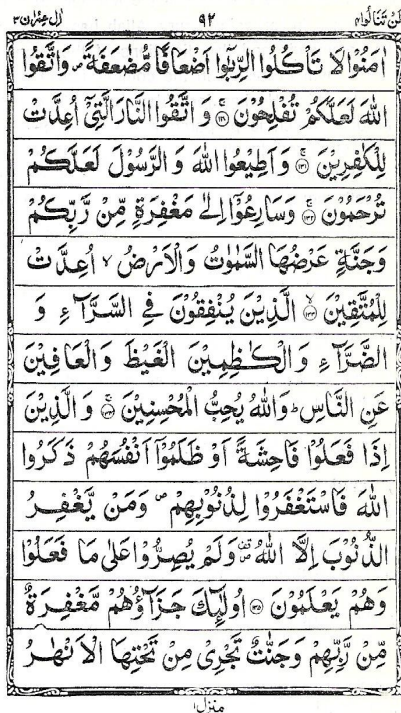 لَنْ تَنَالُوا۴ ۹۲ اٰلِ عِمْرٰن۳
اٰمَنُوْا لَا تَاْكُلُوا الرِّبٰۤوا اَضْعَافًا مُّضٰعَفَةً ۪ وَّاتَّقُوا
اللهَ لَعَلَّكُمْ تُفْلِحُوْنَ ۚ﴿۱۳۰﴾ وَ اتَّقُوا النَّارَ الَّتِیْۤ اُعِدَّتْ
لِلْكٰفِرِیْنَ ۚ﴿۱۳۱﴾ وَ اَطِیْعُوا اللهَ وَ الرَّسُوْلَ لَعَلَّكُمْ
تُرْحَمُوْنَ ۚ﴿۱۳۲﴾ وَ سَارِعُوْۤا اِلٰی مَغْفِرَةٍ مِّنْ رَّبِّكُمْ
وَ جَنَّةٍ عَرْضُهَا السَّمٰوٰتُ وَ الْاَرْضُ ۙ اُعِدَّتْ
لِلْمُتَّقِیْنَ ۙ﴿۱۳۳﴾ الَّذِیْنَ یُنْفِقُوْنَ فِی السَّرَّآءِ وَ
الضَّرَّآءِ وَ الْكٰظِمِیْنَ الْغَیْظَ وَ الْعَافِیْنَ
عَنِ النَّاسِ ؕ وَ اللهُ یُحِبُّ الْمُحْسِنِیْنَ ۚ﴿۱۳۴﴾ وَ الَّذِیْنَ
اِذَا فَعَلُوْا فَاحِشَةً اَوْ ظَلَمُوْۤا اَنْفُسَهُمْ ذَكَرُوا
اللهَ فَاسْتَغْفَرُوْا لِذُنُوْبِهِمْ ۪ وَ مَنْ یَّغْفِرُ
الذُّنُوْبَ اِلَّا اللهُ ۪۫ وَ لَمْ یُصِرُّوْا عَلٰی مَا فَعَلُوْا
وَ هُمْ یَعْلَمُوْنَ ﴿۱۳۵﴾ اُولٰٓئِكَ جَزَآؤُهُمْ مَّغْفِرَةٌ
مِّنْ رَّبِّهِمْ وَ جَنّٰتٌ تَجْرِیْ مِنْ تَحْتِهَا الْاَنْهٰرُ
منزل۱